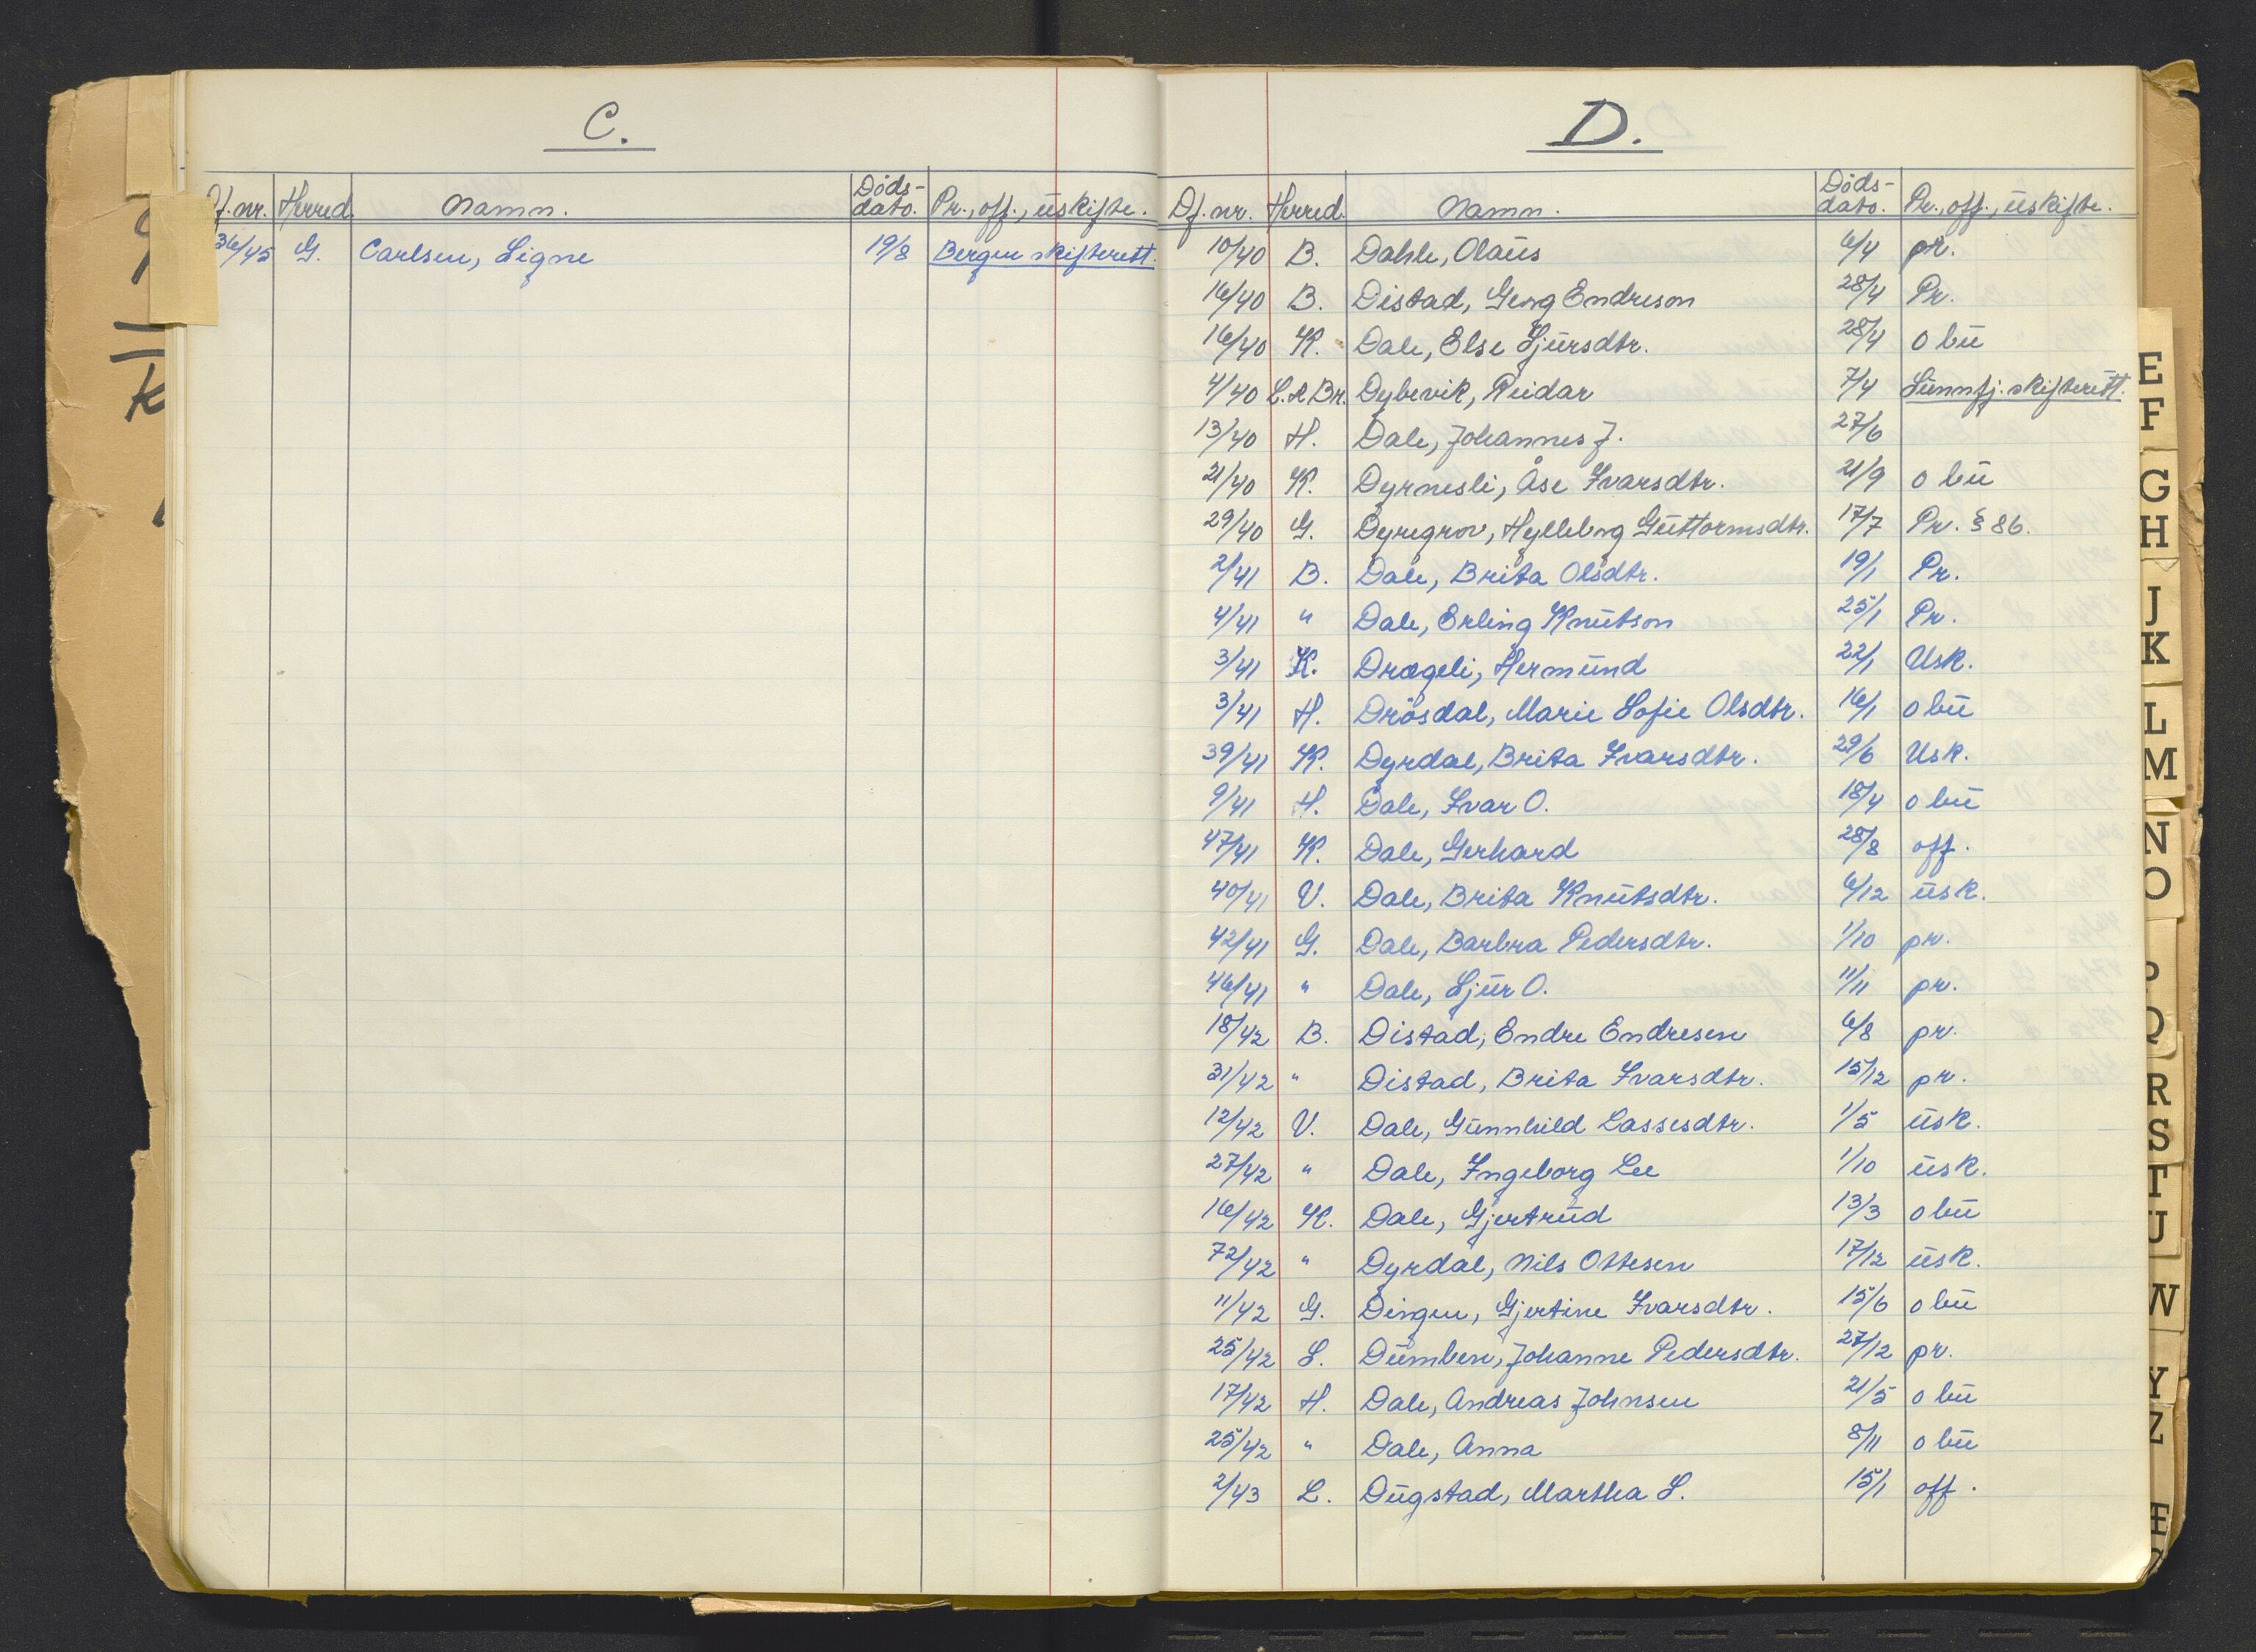 C.
Df. nr. Herred. Namn. Døds-dato. Pr., off., uskifte.
36/45 G. Carlsen, Signe 19/8 Bergen skifterett.
D.
Df. nr. Herred. Namn. Døds-dato. Pr., off., uskifte.
10/40 B. Dahle, Olaus 6/4 pr.
16/40 B. Distad, Georg Endreson 28/4 Pr.
16/40 K. Dale, Else Sjursdtr. 28/4 o bu
4/40 L. & Br. Dybevik, Reidar 7/4 Sunnfj. skifterett.
13/40 H. Dale, Johannes J. 27/6
21/40 K. Dyrnesli, Åse Ivarsdtr. 21/9 o bu
29/40 G. Dyregrov, Hylleborg Guttormsdtr. 17/7 Pr. § 86.
2/41 B. Dale, Brita Olsdtr. 19/1 Pr.
4/41 " Dale, Erling Knutson 25/1 Pr.
3/41 K. Drægeli, Hermund 22/1 Usk.
3/41 H. Drøsdal, Marie Sofie Olsdtr. 16/1 o bu
39/41 K. Dyrdal, Brita Ivarsdtr. 29/6 Usk.
9/41 H. Dale, Ivar O. 18/4 o bu
47/41 K. Dale, Gerhard 28/8 off.
40/41 V. Dale, Brita Knutsdtr. 6/12 usk.
42/41 G. Dale, Barbra Pedersdtr. 1/10 pr.
46/41 " Dale, Sjur O. 11/11 pr.
18/42 B. Distad, Endre Endresen 6/8 pr.
31/42 " Distad, Brita Ivarsdtr. 15/12 pr.
12/42 V. Dale, Gunnhild Lassesdtr. 1/5 usk.
27/42 " Dale, Ingeborg Lee 1/10 usk.
16/42 K. Dale, Gjertrud 13/3 o bu
72/42 " Dyrdal, Nils Ottesen 17/12 usk.
11/42 G. Dingen, Gjertine Ivarsdtr. 15/6 o bu
25/42 S. Dumben, Johanne Pedersdtr. 27/12 pr.
17/42 H. Dale, Andreas Johnsen 21/5 o bu
25/42 " Dale, Anna 8/11 o bu
2/43 L. Dugstad, Martha S. 15/1 off.
E
F
G
H
J
K
L
M
N
O
P
Q
R
S
T
U
W
Y
Z
Æ